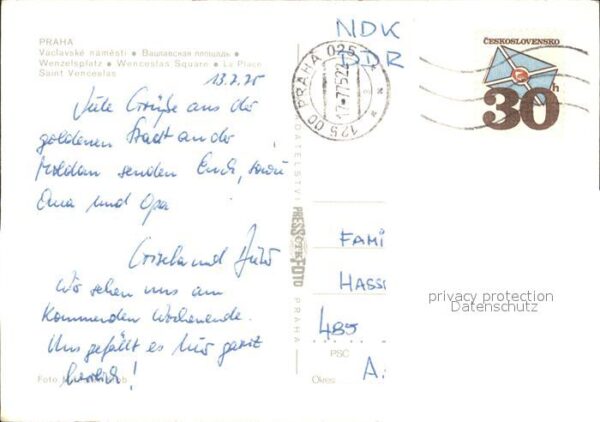 PRAHA
Václavské náměstí • Вацлавская площадь •
Wenzelsplatz • Wenceslas Square • La Place
Saint Venceslas
13.7.75
Viele Grüße aus der
goldenen Stadt an der
Moldau senden Euch, sowie
Oma und Opa
und
Wir sehen uns am
kommenden Wochenende.
Uns gefällt es hier ganz
herrlich!
Foto
PRESSFOTO
PRAHA
NDK
DDR
PRAHA 025
125 00
ČESKOSLOVENSKO
30h
FAMI
HASS
485
A
PSČ
Okres
privacy protection
Datenschutz